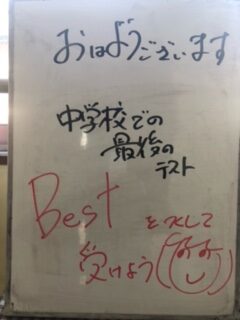 おはようございます
中学校での
最後の
テスト
Best をつくして
受けよう